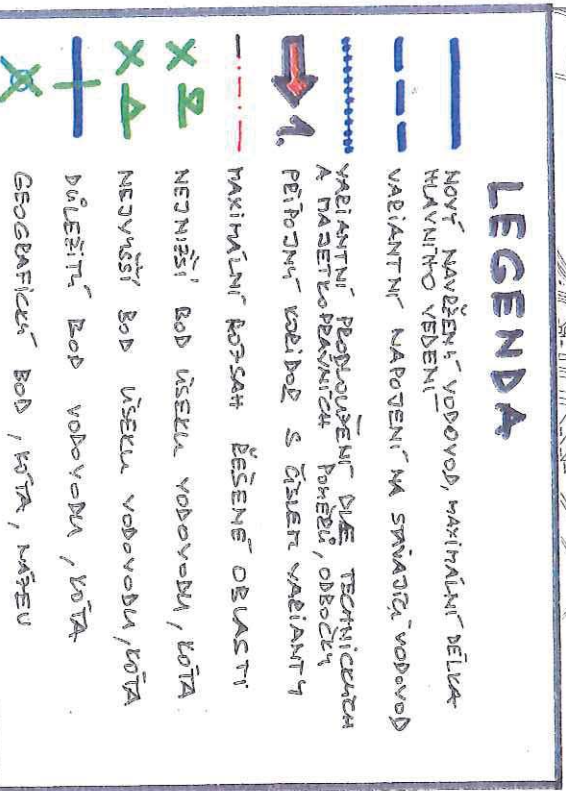 LEGENDA
NOVÝ NAVRŽENÝ VODOVOD, MAXIMÁLNÍ DÉLKA
HLAVNÍHO VEDENÍ
VARIANTNÍ NAPOJENÍ NA STÁVAJÍCÍ VODOVOD
VARIANTNÍ PRODLOUŽENÍ DLE TECHNICKÝCH
A MAJETKOPRÁVNÍCH POMĚRŮ, ODBOČKY
1. PŘÍPOJNÝ KORIDOR S ČÍSLEM VARIANTY
MAXIMÁLNÍ ROZSAH ŘEŠENÉ OBLASTI
NEJNIŽŠÍ BOD ÚSEKU VODOVODU, KÓTA
NEJVYŠŠÍ BOD ÚSEKU VODOVODU, KÓTA
DŮLEŽITÝ BOD VODOVODU, KÓTA
GEOGRAFICKÝ BOD, KÓTA, NÁZEV